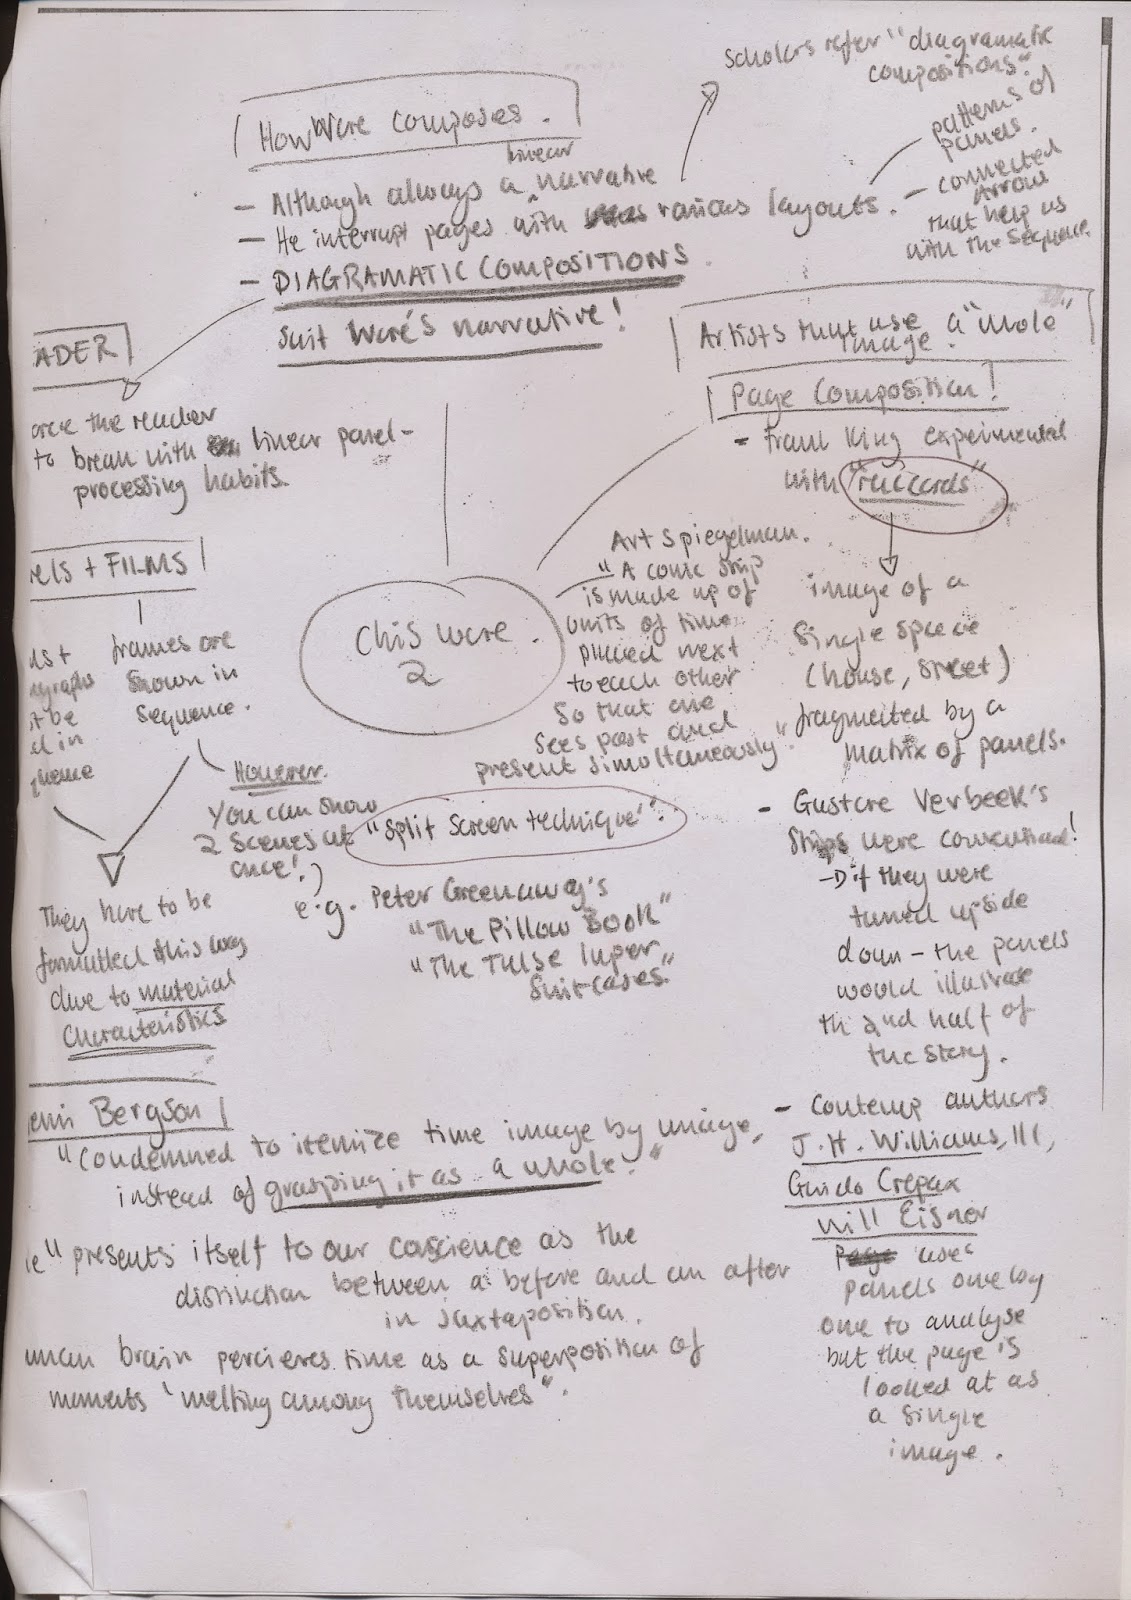 Scholars refer "diagramatic
compositions".
How Ware composes.
- Although always a linear narrative
- He interrupt pages with various layouts.
- DIAGRAMATIC COMPOSITIONS
suit Ware's narrative!
patterns of
panels.
- connected
Arrows
that help us
with the sequence.
ADER
orce the reader
to break with linear panel-
processing habits.
Artists that use a "whole"
image.
Page Composition!
- Frank King experimental
with "raccords"
image of a
single space
(house, street)
fragmeited by a
matrix of panels.
- Gustave Verbeek's
strips were conventional!
- D if they were
turned upside
down - the panels
would illustrate
th 2nd half of
the story.
- Contemp authors
J.H. Williams, III,
Guido Crepax
Will Eisner
uses
panels one by
one to analyse
but the page is
looked at as
a single
image.
Chis Ware.
2
Art Spiegelman.
"A comic strip
is made up of
units of time
placed next
to each other
so that one
sees past and
present simoltaneously".
"Split Screen technique".
e.g. Peter Greenaway's
"The Pillow Book"
"The Tulse Luper
Suitcases."
els + FILMS
frames are
shown in
sequence.
However.
You can show
2 scenes at
once!
They have to be
formatted this way
due to material
characteristics
enri Bergson
"Condemned to itemize time image by image,
instead of grasping it as a whole."
e" presents itself to our conscience as the
distinction between a before and an after
in juxtaposition.
uman brain percieves time as a superposition of
moments 'melting among themselves".